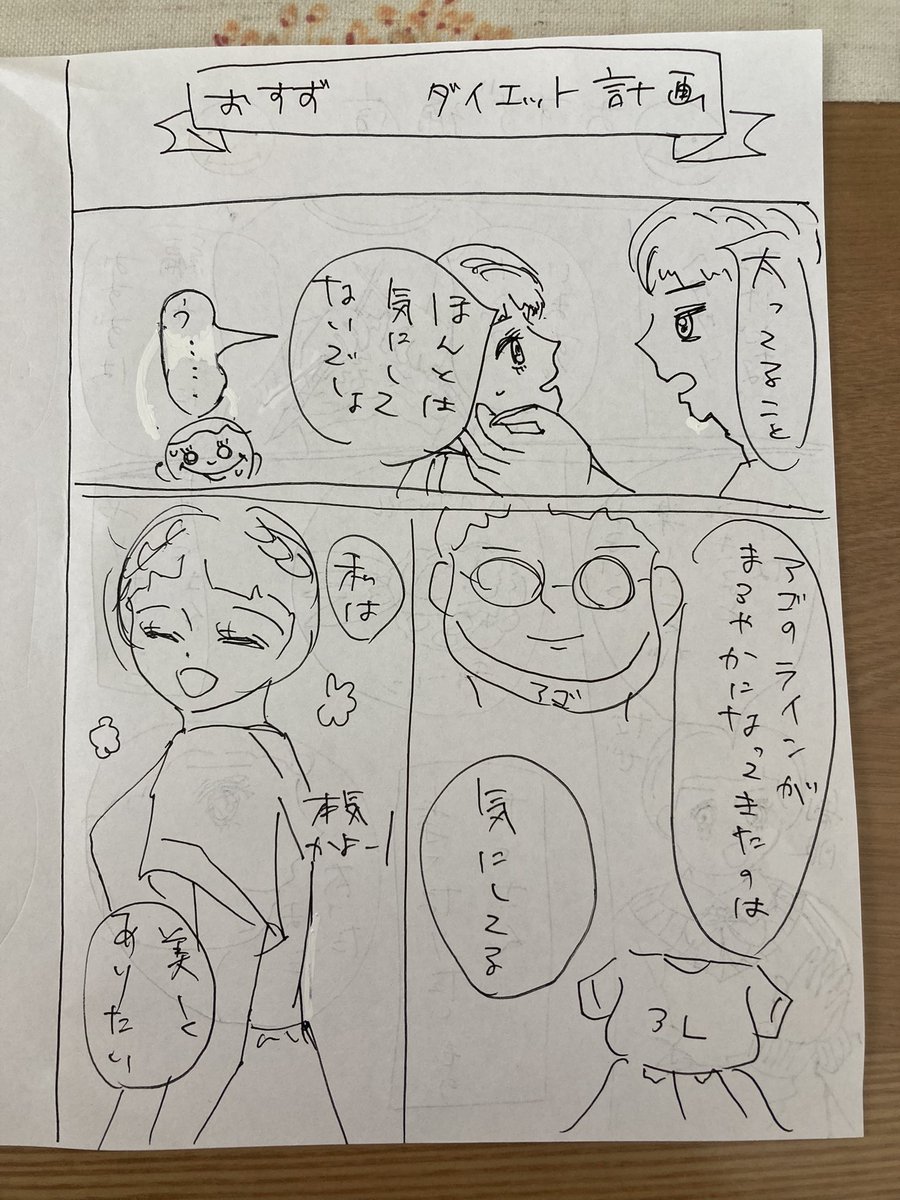 おすず ダイエット計画
太ってること
ほんとは
気にして
ないでしょ
う……
アゴのラインが
まろやかになってきたのは
アゴ
気にしてる
3L
私は
本気
かよー
美しく
ありたい